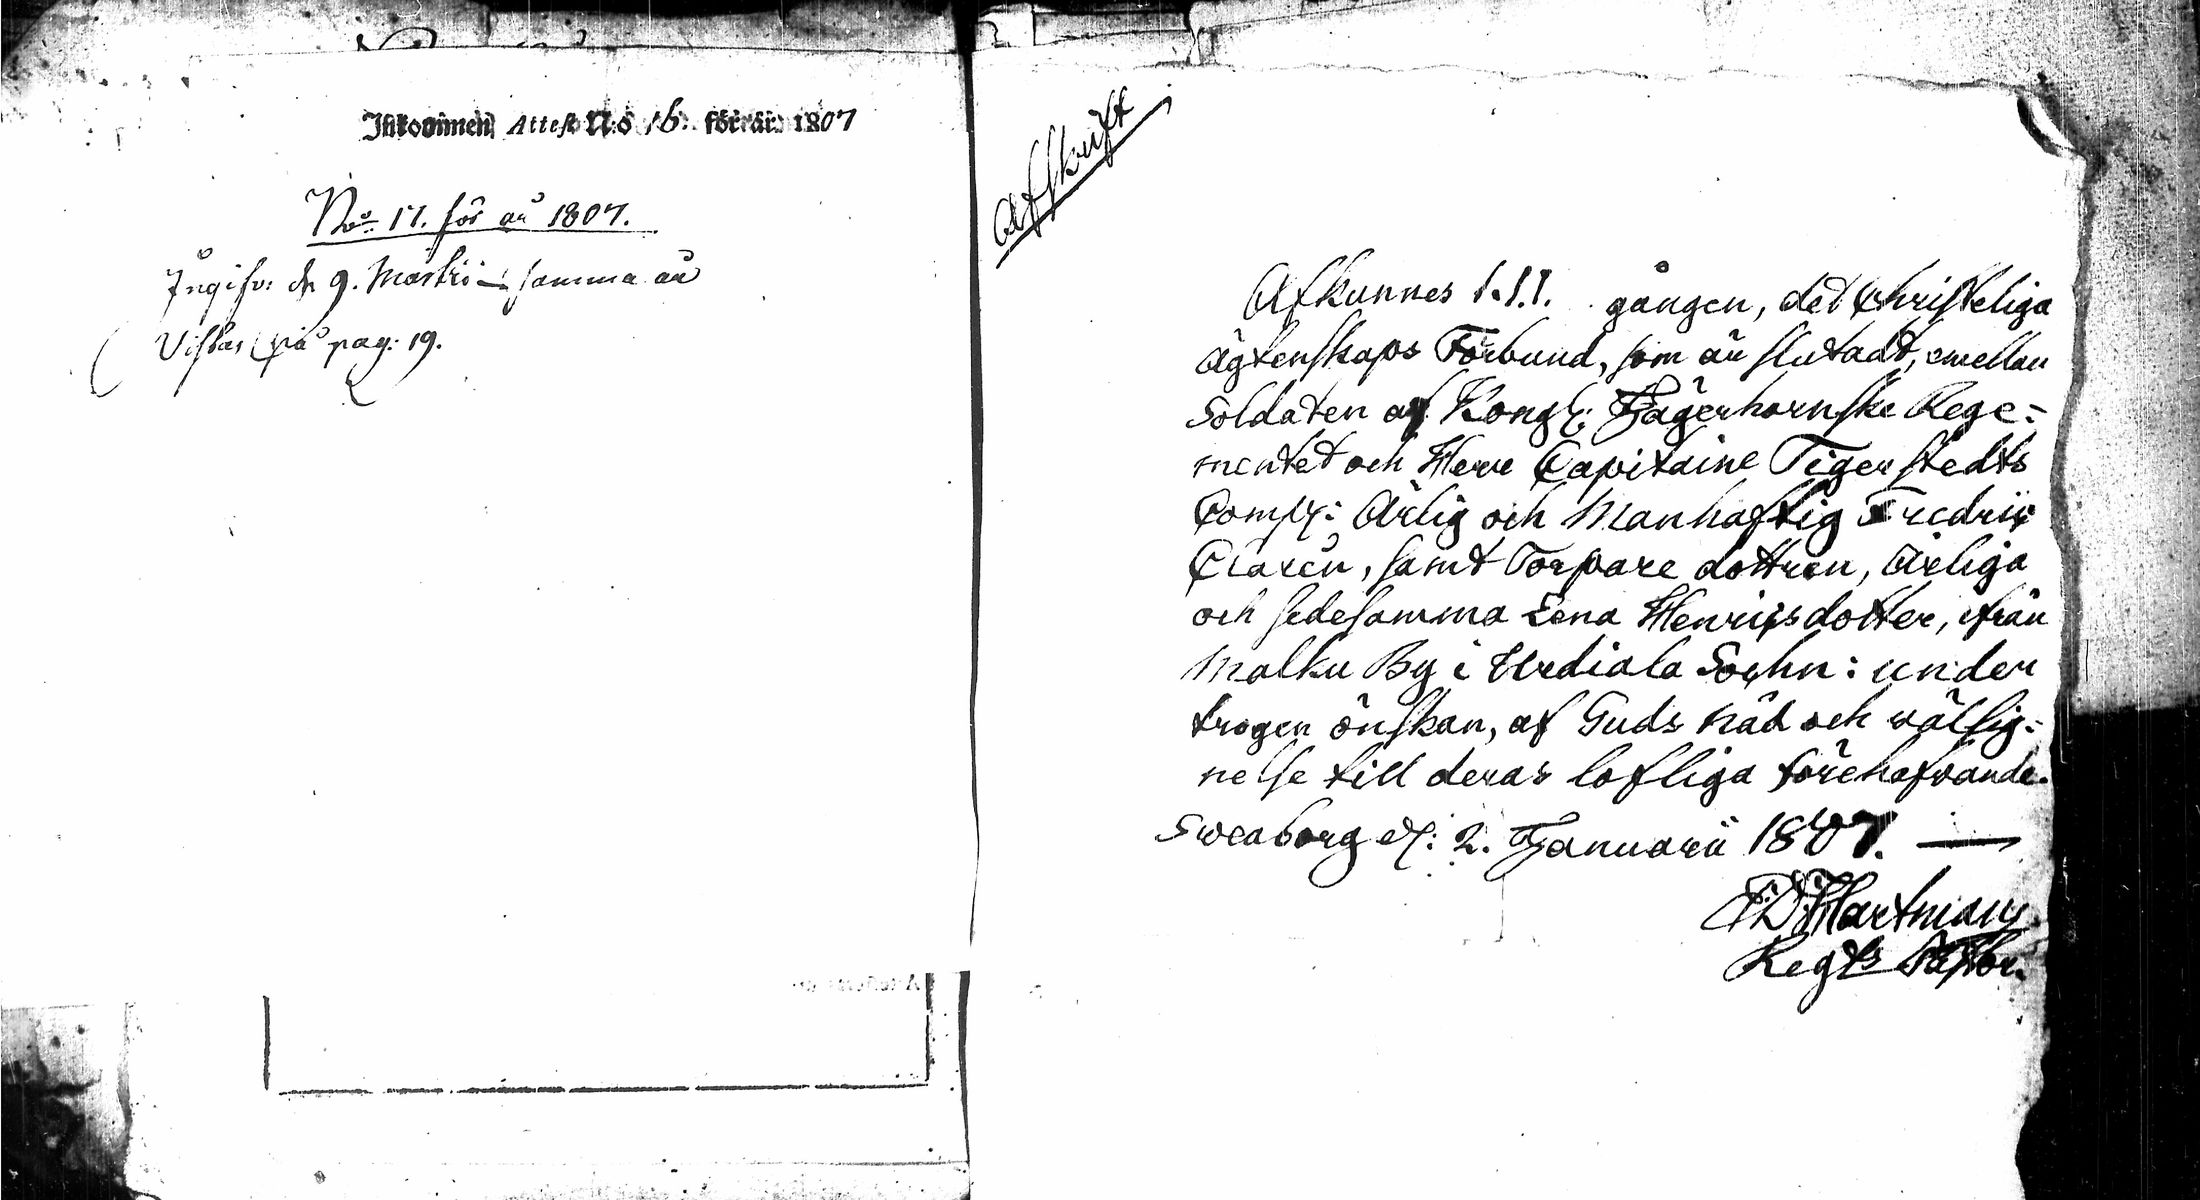 Inkommen Attest N:o 16. för år 1807
No 17. för år 1807.
Ingifv: d. 9. Martii samma år
Vistas på pag: 19.
Afskrift
Afkunnes 1.1.1. gången, det Christeliga
Ägtenskaps Förbund, som är slutadt, emellan
Soldaten af Kongl: Jägerhornske Rege=
mentet och Herr Capitaine Tigerstedts
Comp: Ärlig och Manhaftig Fredric
Claren, samt Torpare dottren, Ärliga
och sedesamma Lena Henricsdotter, ifrån
Malku By i Urdiala Sochn: under
trogen önskan, af Guds nåd och välsig=
nelse till deras lofliga förehafvande.
Sweaborg d: 2. Januarii 1807.
Hartman
Regts Pastor.